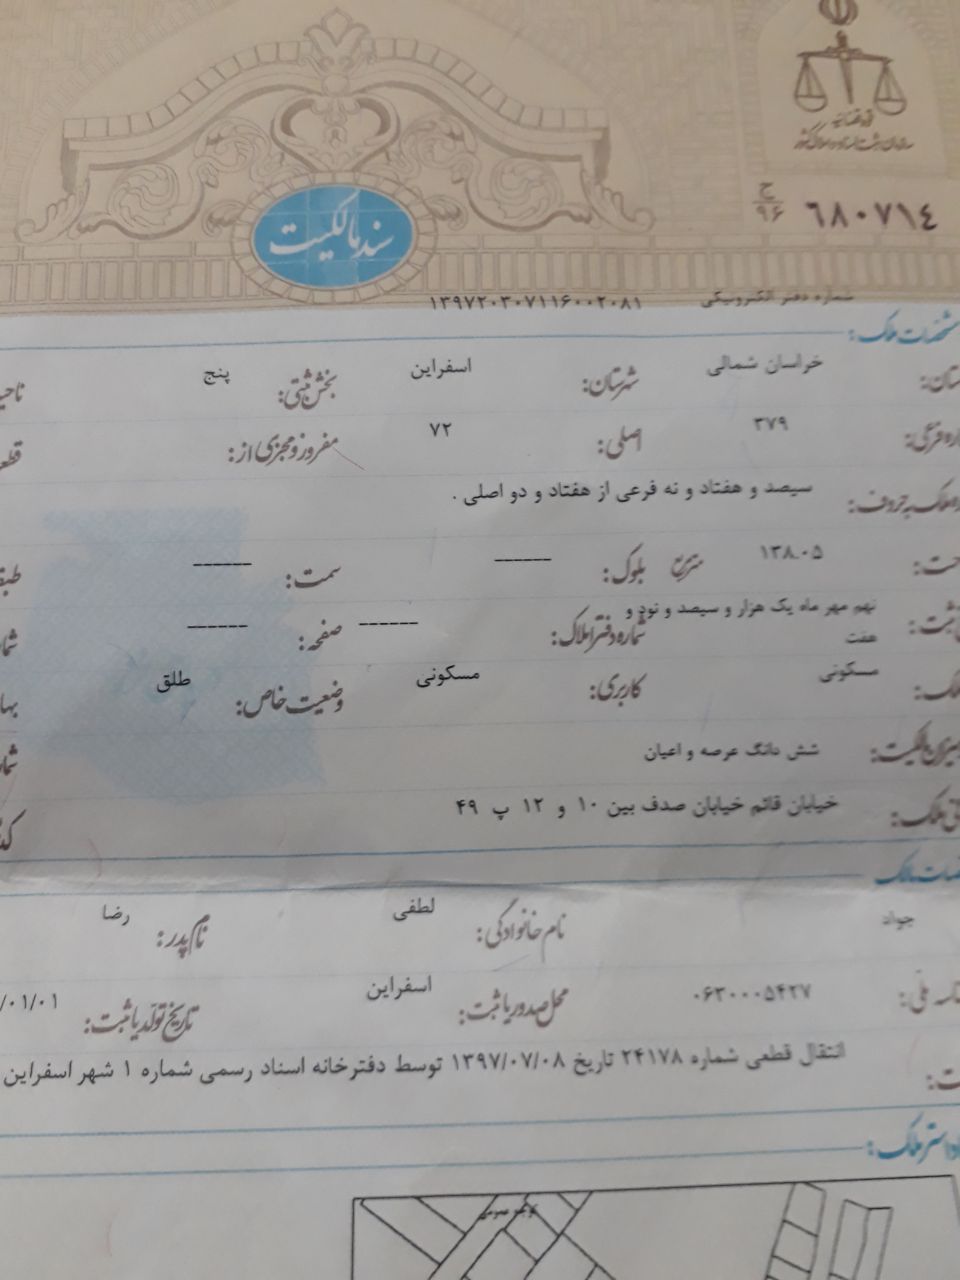 قوه قضائیه
سازمان ثبت اسناد و املاک کشور
ح
۹۶
۶۸۰۷۱۴
سند مالکیت
شماره دفتر الکترونیکی ۱۳۹۷۲۰۳۰۷۱۱۶۰۰۲۰۸۱
مشخصات ملک:
خراسان شمالی شهرستان: اسفراین بخش ثبتی: پنج
۳۷۹ اصلی: ۷۲ مفروز و مجزی از:
سیصد و هفتاد و نه فرعی از هفتاد و دو اصلی .
۱۳۸.۰۵ مترمربع بلوک: ------ سمت: ------
نهم مهر ماه یک هزار و سیصد و نود و هفت شماره دفتر املاک: ------ صفحه: ------
مسکونی کاربری: مسکونی وضعیت خاص: طلق
مالکیت: شش دانگ عرصه و اعیان
ملک: خیابان قائم خیابان صدف بین ۱۰ و ۱۲ پ ۴۹
جواد نام خانوادگی: لطفی نام پدر: رضا
۰۶۳۰۰۰۵۴۲۷ محل صدور یا ثبت: اسفراین تاریخ تولد یا ثبت: /۰۱/۰۱
انتقال قطعی شماره ۲۴۱۷۸ تاریخ ۱۳۹۷/۰۷/۰۸ توسط دفترخانه اسناد رسمی شماره ۱ شهر اسفراین
ملک: